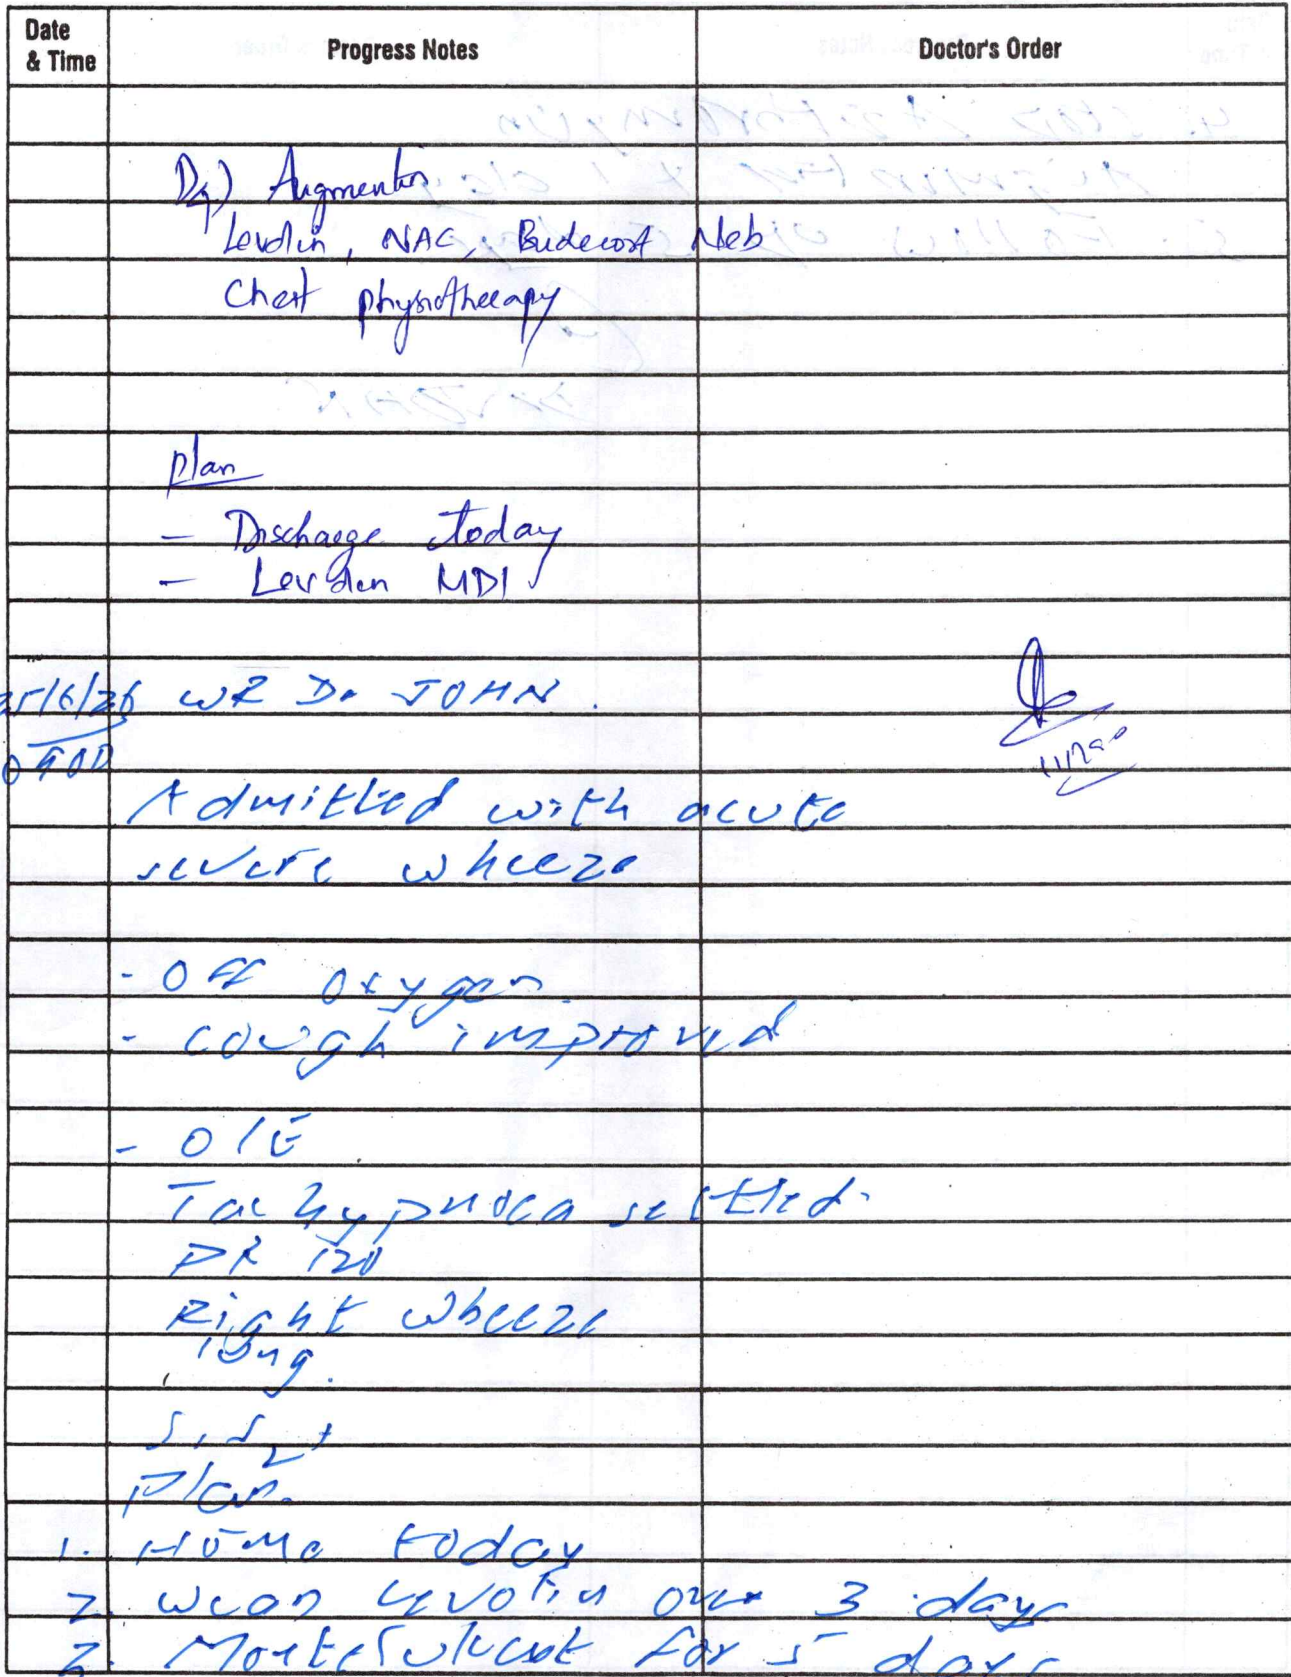 Date & Time
Progress Notes
Doctor's Order
D4) Augmentin
Levolin, NAC, Budecort Neb
Chest physiotherapy
plan
- Discharge today
- Levolin MDI
25/6/26 WR Dr JOHN.
0900
Admitted with acute
severe wheeze
- Off oxygen.
- cough improved
- O/E
Tachypnoea settled.
PR 120
Right wheeze
lung.
S1S2+
Plan.
1. Home today
2. Wean Levolin over 3 days
3. Montelukast for 5 days